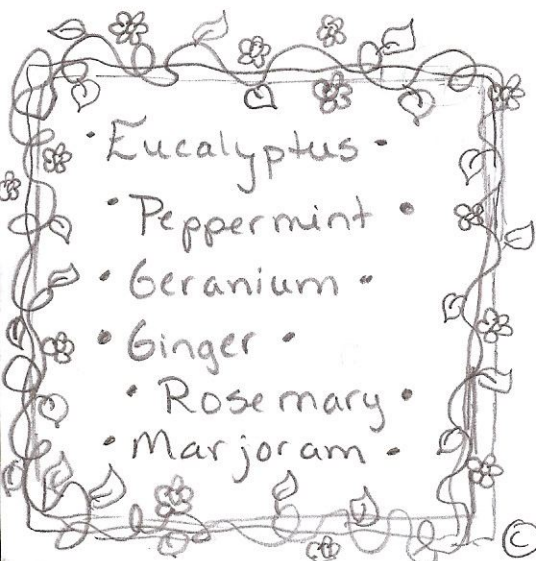 ·Eucalyptus·
·Peppermint·
·Geranium·
·Ginger·
·Rosemary·
·Marjoram·
©